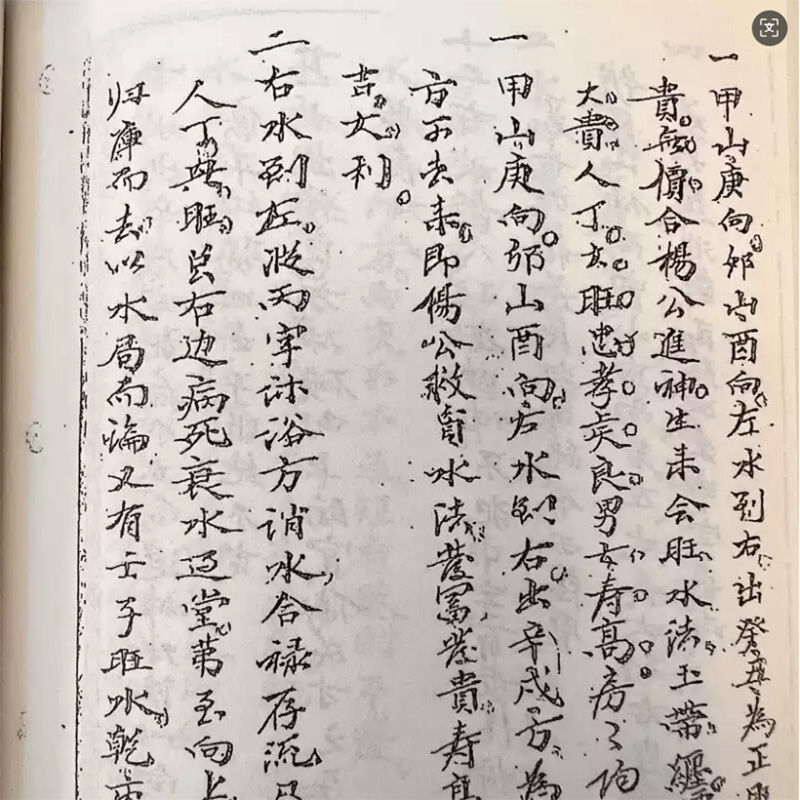 一甲山庚向。卯山酉向。左水到右。出癸丑為正
貴無價合楊公進神生来会旺水法玉带纏
大貴人丁大旺忠孝贤良男女寿高房々均
一甲山庚向。卯山酉向。右水到右。出辛戌方為
方不去来即傷公救育水法發冨發貴寿
吉大利。
二右水到左。従丙字沐浴方消水合禄存流
人丁興旺。右边病死衰水过堂。向上
归庫而去以水局而論又有士子旺水。乾